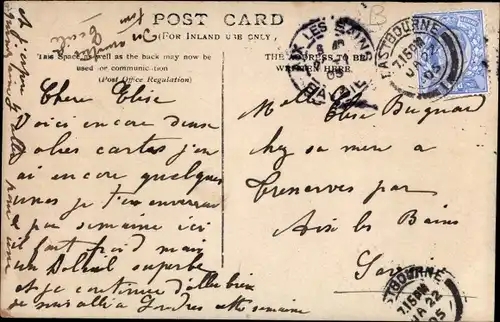 POST CARD
(FOR INLAND USE ONLY.)
This Space as well as the back may now be
used for communication
(Post Office Regulation)
THE ADDRESS TO BE
WRITTEN HERE.
AIX LES BAINS
SAVOIE
EASTBOURNE
7.15PM
JA 22
05
Chere Elise
Voici encore deux
jolies cartes j'en
ai encore quelques
unes je t'en enverrai
par semaine ici
il fait froid mais
un Soleil superbe
et je continue d'aller bien
je suis allé a Londres cette semaine
Melle Elise
chez sa mere a
Tresserves par
Aix les Bains
Savoie
EASTBOURNE
7.15PM
JA 22
05